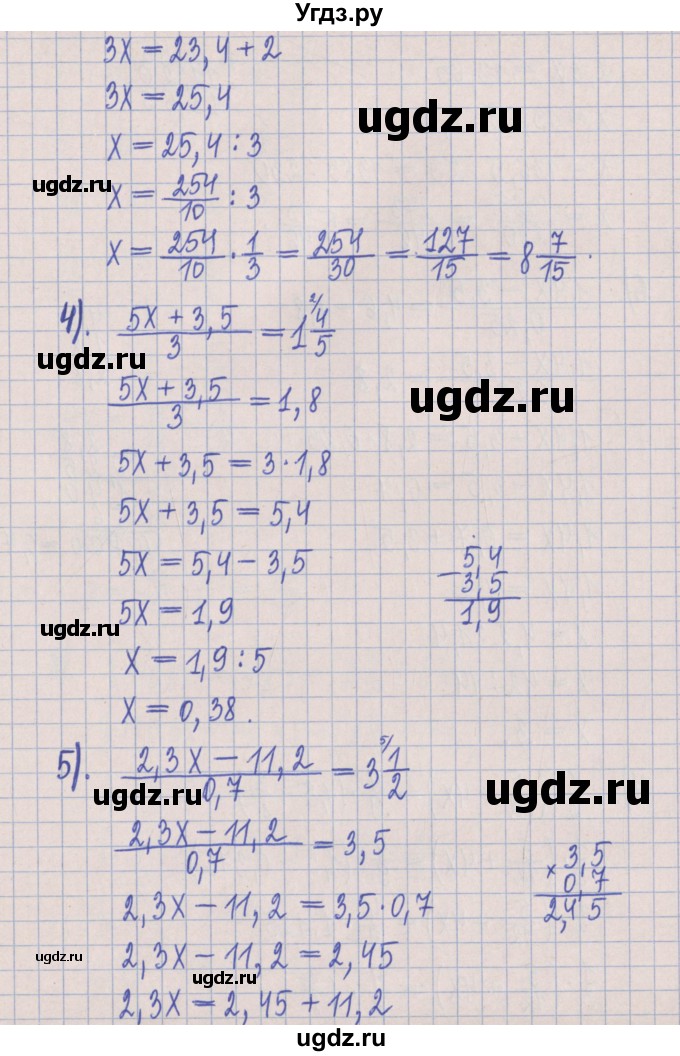 Угдз.ру
3x = 23,4 + 2
3x = 25,4
ugdz.ru
x = 25,4 : 3
ugdz.ru
x = 254/10 : 3
x = 254/10 · 1/3 = 254/30 = 127/15 = 8 7/15 .
4). (5x + 3,5)/3 = 1 ²/4/5
ugdz.ru
(5x + 3,5)/3 = 1,8
ugdz.ru
5x + 3,5 = 3 · 1,8
5x + 3,5 = 5,4
5x = 5,4 − 3,5
5,4
− 3,5
1,9
5x = 1,9
ugdz.ru
x = 1,9 : 5
x = 0,38 .
5). (2,3x − 11,2)/0,7 = 3 ⁵/1/2
ugdz.ru
ugdz.ru
(2,3x − 11,2)/0,7 = 3,5
3,5
× 0,7
2,45
2,3x − 11,2 = 3,5 · 0,7
2,3x − 11,2 = 2,45
ugdz.ru
ugdz.ru
2,3x = 2,45 + 11,2
ugdz.ru